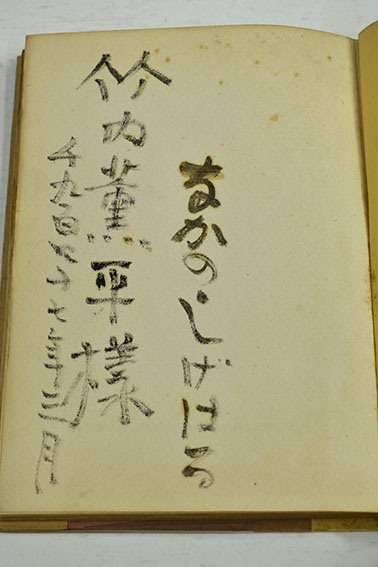 なかの・しげはる
竹内薫平様
千九百四十七年三月